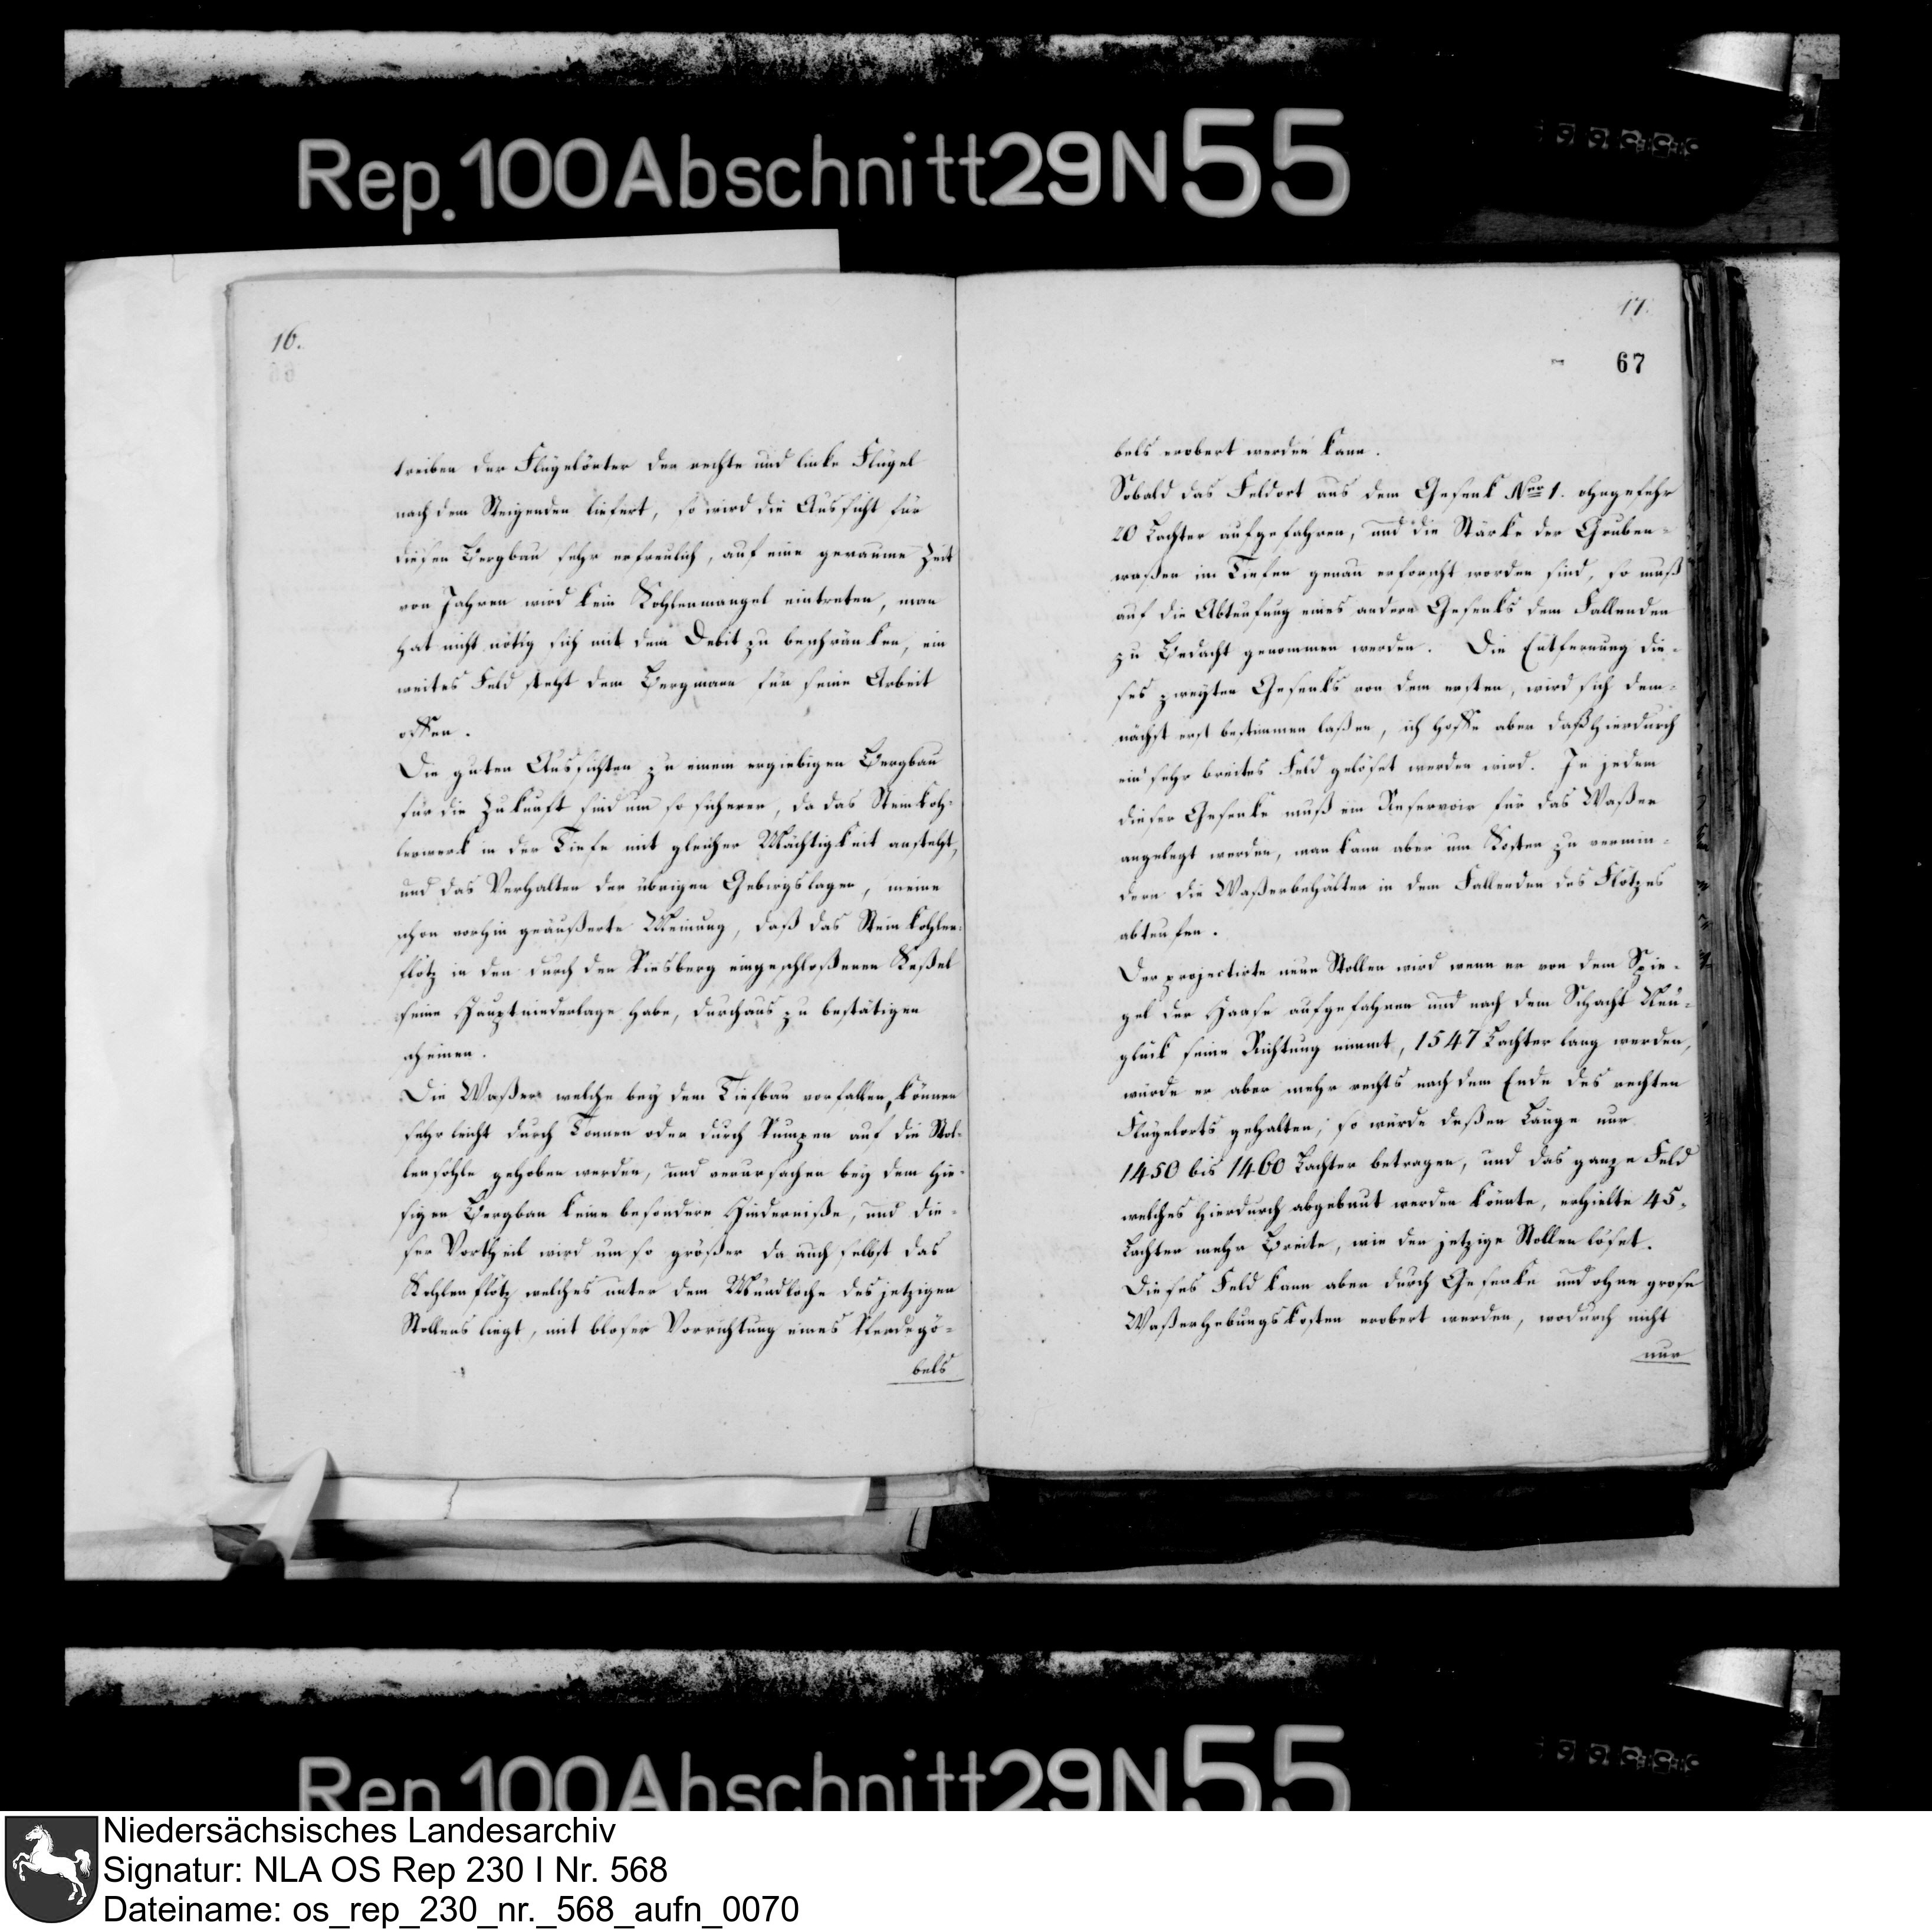 Rep. 100 Abschnitt 29 N 55
16.
treiben der Flügelörter der rechte und linke Flügel
nach dem Steigenden liefert, so wird die Aussicht für
diesen Bergbau sehr erfreulich, auf eine geraume Zeit
von Jahren wird kein Kohlenmangel eintreten, man
hat nicht nötig sich mit dem Debit zu beschränken, ein
weites Feld steht dem Bergmann für seine Arbeit
offen.
Die guten Aussichten zu einem ergiebigen Bergbau
für die Zukunft sind um so sicherer, da das Steinkoh-
lenwerk in der Tiefe mit gleicher Mächtigkeit ansteht,
und das Verhalten der übrigen Gebirgslagen, meine
schon vorhin geäußerte Meinung, daß das Steinkohlen-
flötz in den durch den Piesberg eingeschloßenen Keßel
seine Hauptniederlage habe, durchaus zu bestätigen
scheinen.
Die Waßer welche bey dem Tiefbau vorfallen, können
sehr leicht durch Tonnen oder durch Pumpen auf die Stol-
lensohle gehoben werden, und verursachen bey dem hie-
sigen Bergbau keine besondere Hinderniße, und die-
ser Vortheil wird um so größer da auch selbst das
Kohlenflötz welches unter dem Mundloche des jetzigen
Stollens liegt, mit bloser Vorrichtung eines Pferdegö-
bels
17.
67
bels erobert werden kann.
Sobald das Feldort aus dem Gesenk Nro 1. ohngefehr
20 Lachter aufgefahren, und die Stärke der Gruben-
waßer im Tiefen genau erforscht worden sind, so muß
auf die Abteufung eines andern Gesenks dem Fallenden
zu Bedacht genommen werden. Die Entfernung die-
ses zweyten Gesenks von dem ersten, wird sich dem-
nächst erst bestimmen laßen, ich hoffe aber daß hierdurch
ein sehr breites Feld gelöset werden wird. In jedem
dieser Gesenke muß ein Reservoir für das Waßer
angelegt werden, man kann aber um Kosten zu vermin-
dern die Waßerbehälter in dem Fallenden des Flötzes
abteufen.
Der projectirte neue Stollen wird wenn er von dem Spie-
gel der Haase aufgefahren und nach dem Schacht Neu-
glück seine Richtung nimmt, 1547 Lachter lang werden,
würde er aber mehr rechts nach dem Ende des rechten
Flügelorts gehalten, so würde deßen Länge nur
1450 bis 1460 Lachter betragen, und das ganze Feld
welches hierdurch abgebaut werden könnte, erhielte 45.
Lachter mehr Breite, wie der jetzige Stollen löset.
Dieses Feld kann aber durch Gesenke und ohne grose
Waßerhebungskosten erobert werden, wodurch nicht
nur
Rep. 100 Abschnitt 29 N 55
Niedersächsisches Landesarchiv
Signatur: NLA OS Rep 230 I Nr. 568
Dateiname: os_rep_230_nr._568_aufn_0070